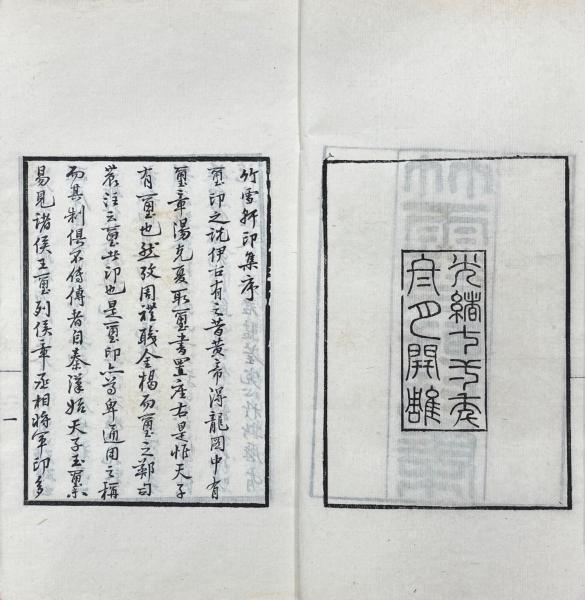 光緒年
月開雕
竹雪軒印集序
璽印之說伊古有之昔黃帝得龍圖中有
璽章湯克夏取璽書置座右是惟天子
有璽也然攷周禮職金楬而璽之鄭司
農注云璽者印也是璽印亦尊卑通用之稱
而其制俱不傳傳者自秦漢始天子玉璽不
易見諸侯王璽列侯章丞相將軍印多
一